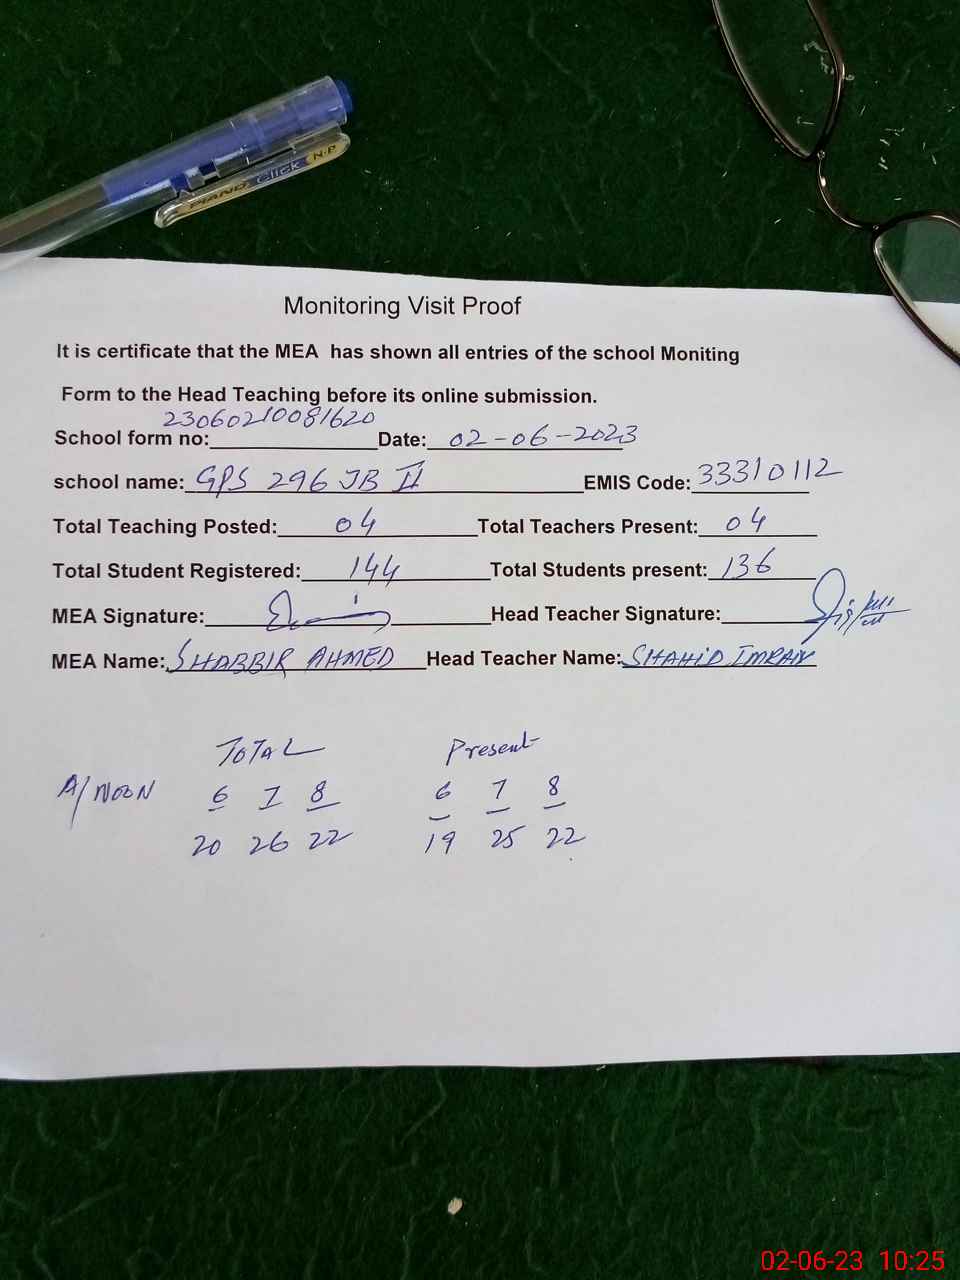 PIANO Click N-P
Monitoring Visit Proof
It is certificate that the MEA has shown all entries of the school Moniting
Form to the Head Teaching before its online submission.
School form no: 23060210081620 Date: 02-06-2023
school name: GPS 296 JB II EMIS Code: 33310112
Total Teaching Posted: 04 Total Teachers Present: 04
Total Student Registered: 144 Total Students present: 136
MEA Signature: Head Teacher Signature:
MEA Name: SHABBIR AHMED Head Teacher Name: SHAHID IMRAN
TOTAL Present
A/NOON 6 7 8 6 7 8
20 26 22 19 25 22
02-06-23 10:25